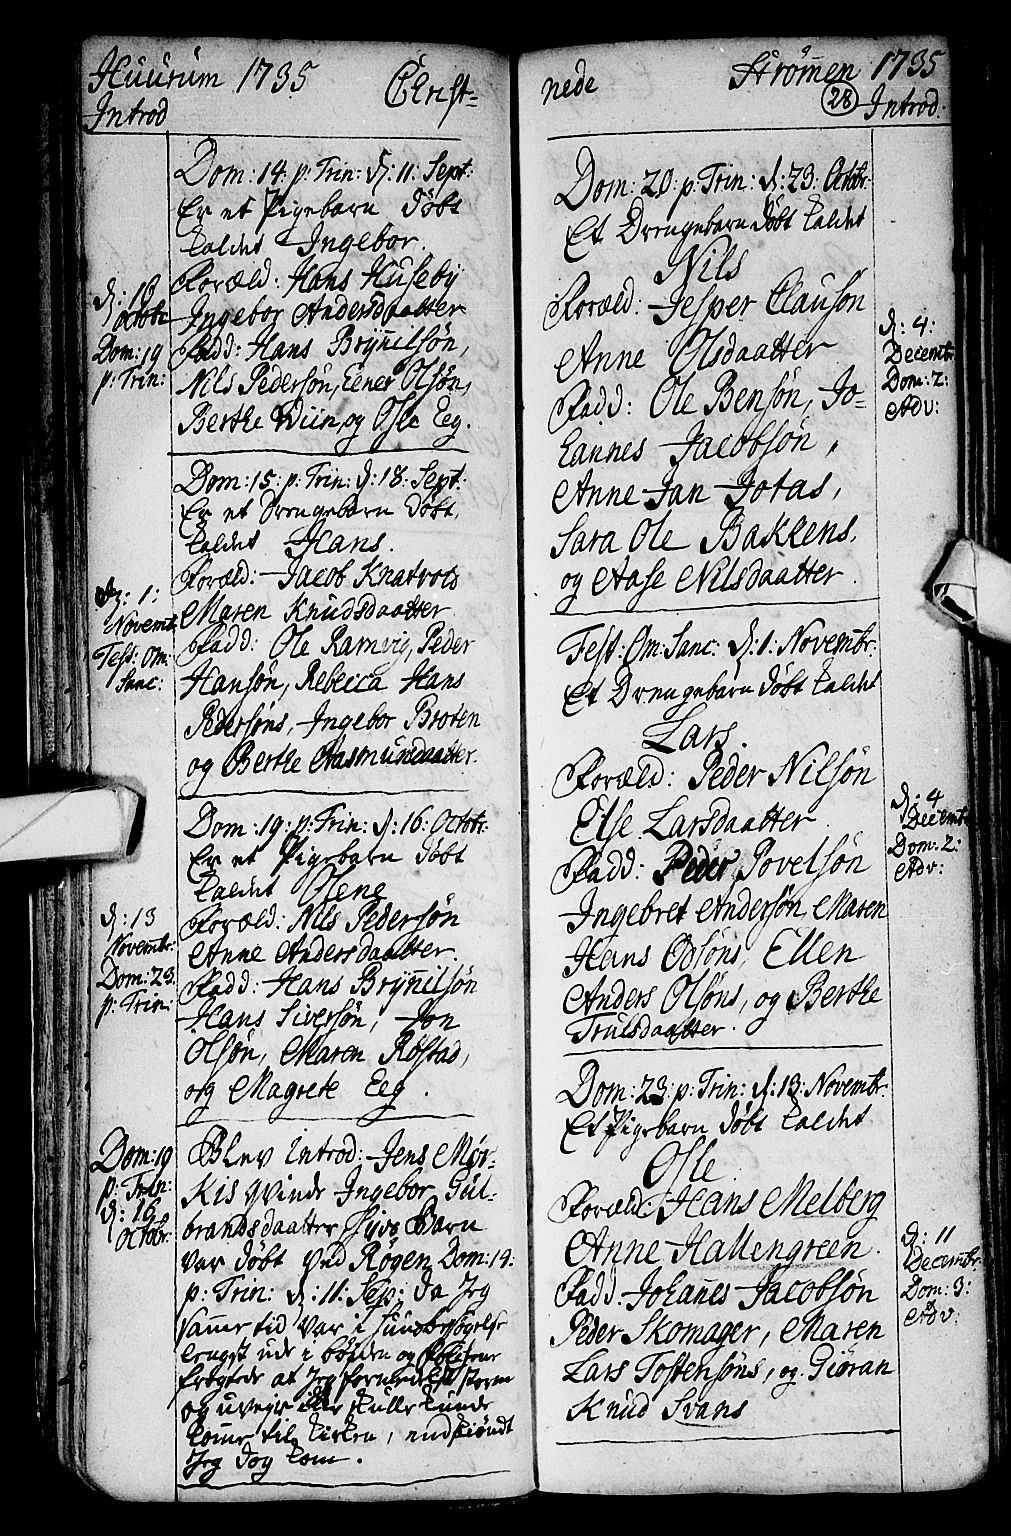 Huurum 1735
Christ-
Introd
Dom: 14: p: Trin: d: 11: Sept:
Er et Pigebarn döbt
kaldet Ingebor.
Foræld: Hans Huseby
Ingebor Andersdaatter
Fadd: Hans Brÿnnilsön,
Nils Pedersön, Eener Olsön,
Berthe Wiin, og Osle Eeg.
d: 16
Octobr
Dom: 19
p: Trin:
Dom: 15: p: Trin: d: 18: Sept:
Er et Drengebarn döbt,
kaldet Hans.
Foræld: Jacob Knatvols
Maren Knudsdaatter
Fadd: Ole Ramvig, Peder
Hansön, Rebecca Hans
Pedersöns, Ingebor Broten
og Berthe Rasmusdaatter.
d: 1:
Novembr
Fest: Om:
Sanc:
Dom: 19: p: Trin: d: 16: Octobr:
Er et Pigebarn döbt
kaldet Olene
Foræld: Nils Pedersön
Anne Andersdaatter.
Fadd: Hans Brÿnnilsön
Hans Siversön, Jon
Olsön, Maren Röstad,
og Magrete Eeg.
d: 13
Novembr:
Dom: 23.
p: Trin:
Blev introd: Jens Mör-
kis qvinde Ingebor Gul-
brandsdaatter hvis Barn
var döbt ved Rögen Dom: 14:
p: Trin: d: 11: Sep: da Jeg
samme tid var i
lengst ude i bögden og
frögtede at Jeg formedelst storm
og uveyr ikke skulle kunde
komme til kirken, endskiöndt
Jeg dog kom.
Dom: 19
p: Trin:
d: 16
Octobr:
nede
Strömmen 1735
28
Introd:
Dom: 20: p: Trin: d: 23: Octobr:
Et Drengebarn döbt kaldet
Nils
Foræld: Jesper Clauson
Anne Olsdaatter
Fadd: Ole Bensön, Jo-
hannes Jacobsön,
Anne Jan Jotas,
Sara Ole Bakkens,
og Aase Nilsdaatter.
d: 4:
Decembr
Dom: 2:
Adv:
Fest: Om: Sanc: d: 1: Novembr:
Et Drengebarn döbt kaldet
Lars.
Foræld: Peder Nilsön
Else Larsdaatter
Fadd: Peder Povelsön
Ingebret Andersön, Maren
Hans Odsöns, Ellen
Anders Olsöns, og Berthe
Trulsdaatter.
d: 4
Decembr
Dom: 2:
Adv:
Dom: 23: p: Trin: d: 13: Novembr:
Et Pigebarn döbt kaldet
Osle
Foræld: Hans Melberg
Anne Hallengreen.
Fadd: Johannes Jacobsön
Peder Skomager, Maren
Lars Tostensöns, og Giöran
Knud Svans
d: 11
Decembr:
Dom: 3:
Adv: